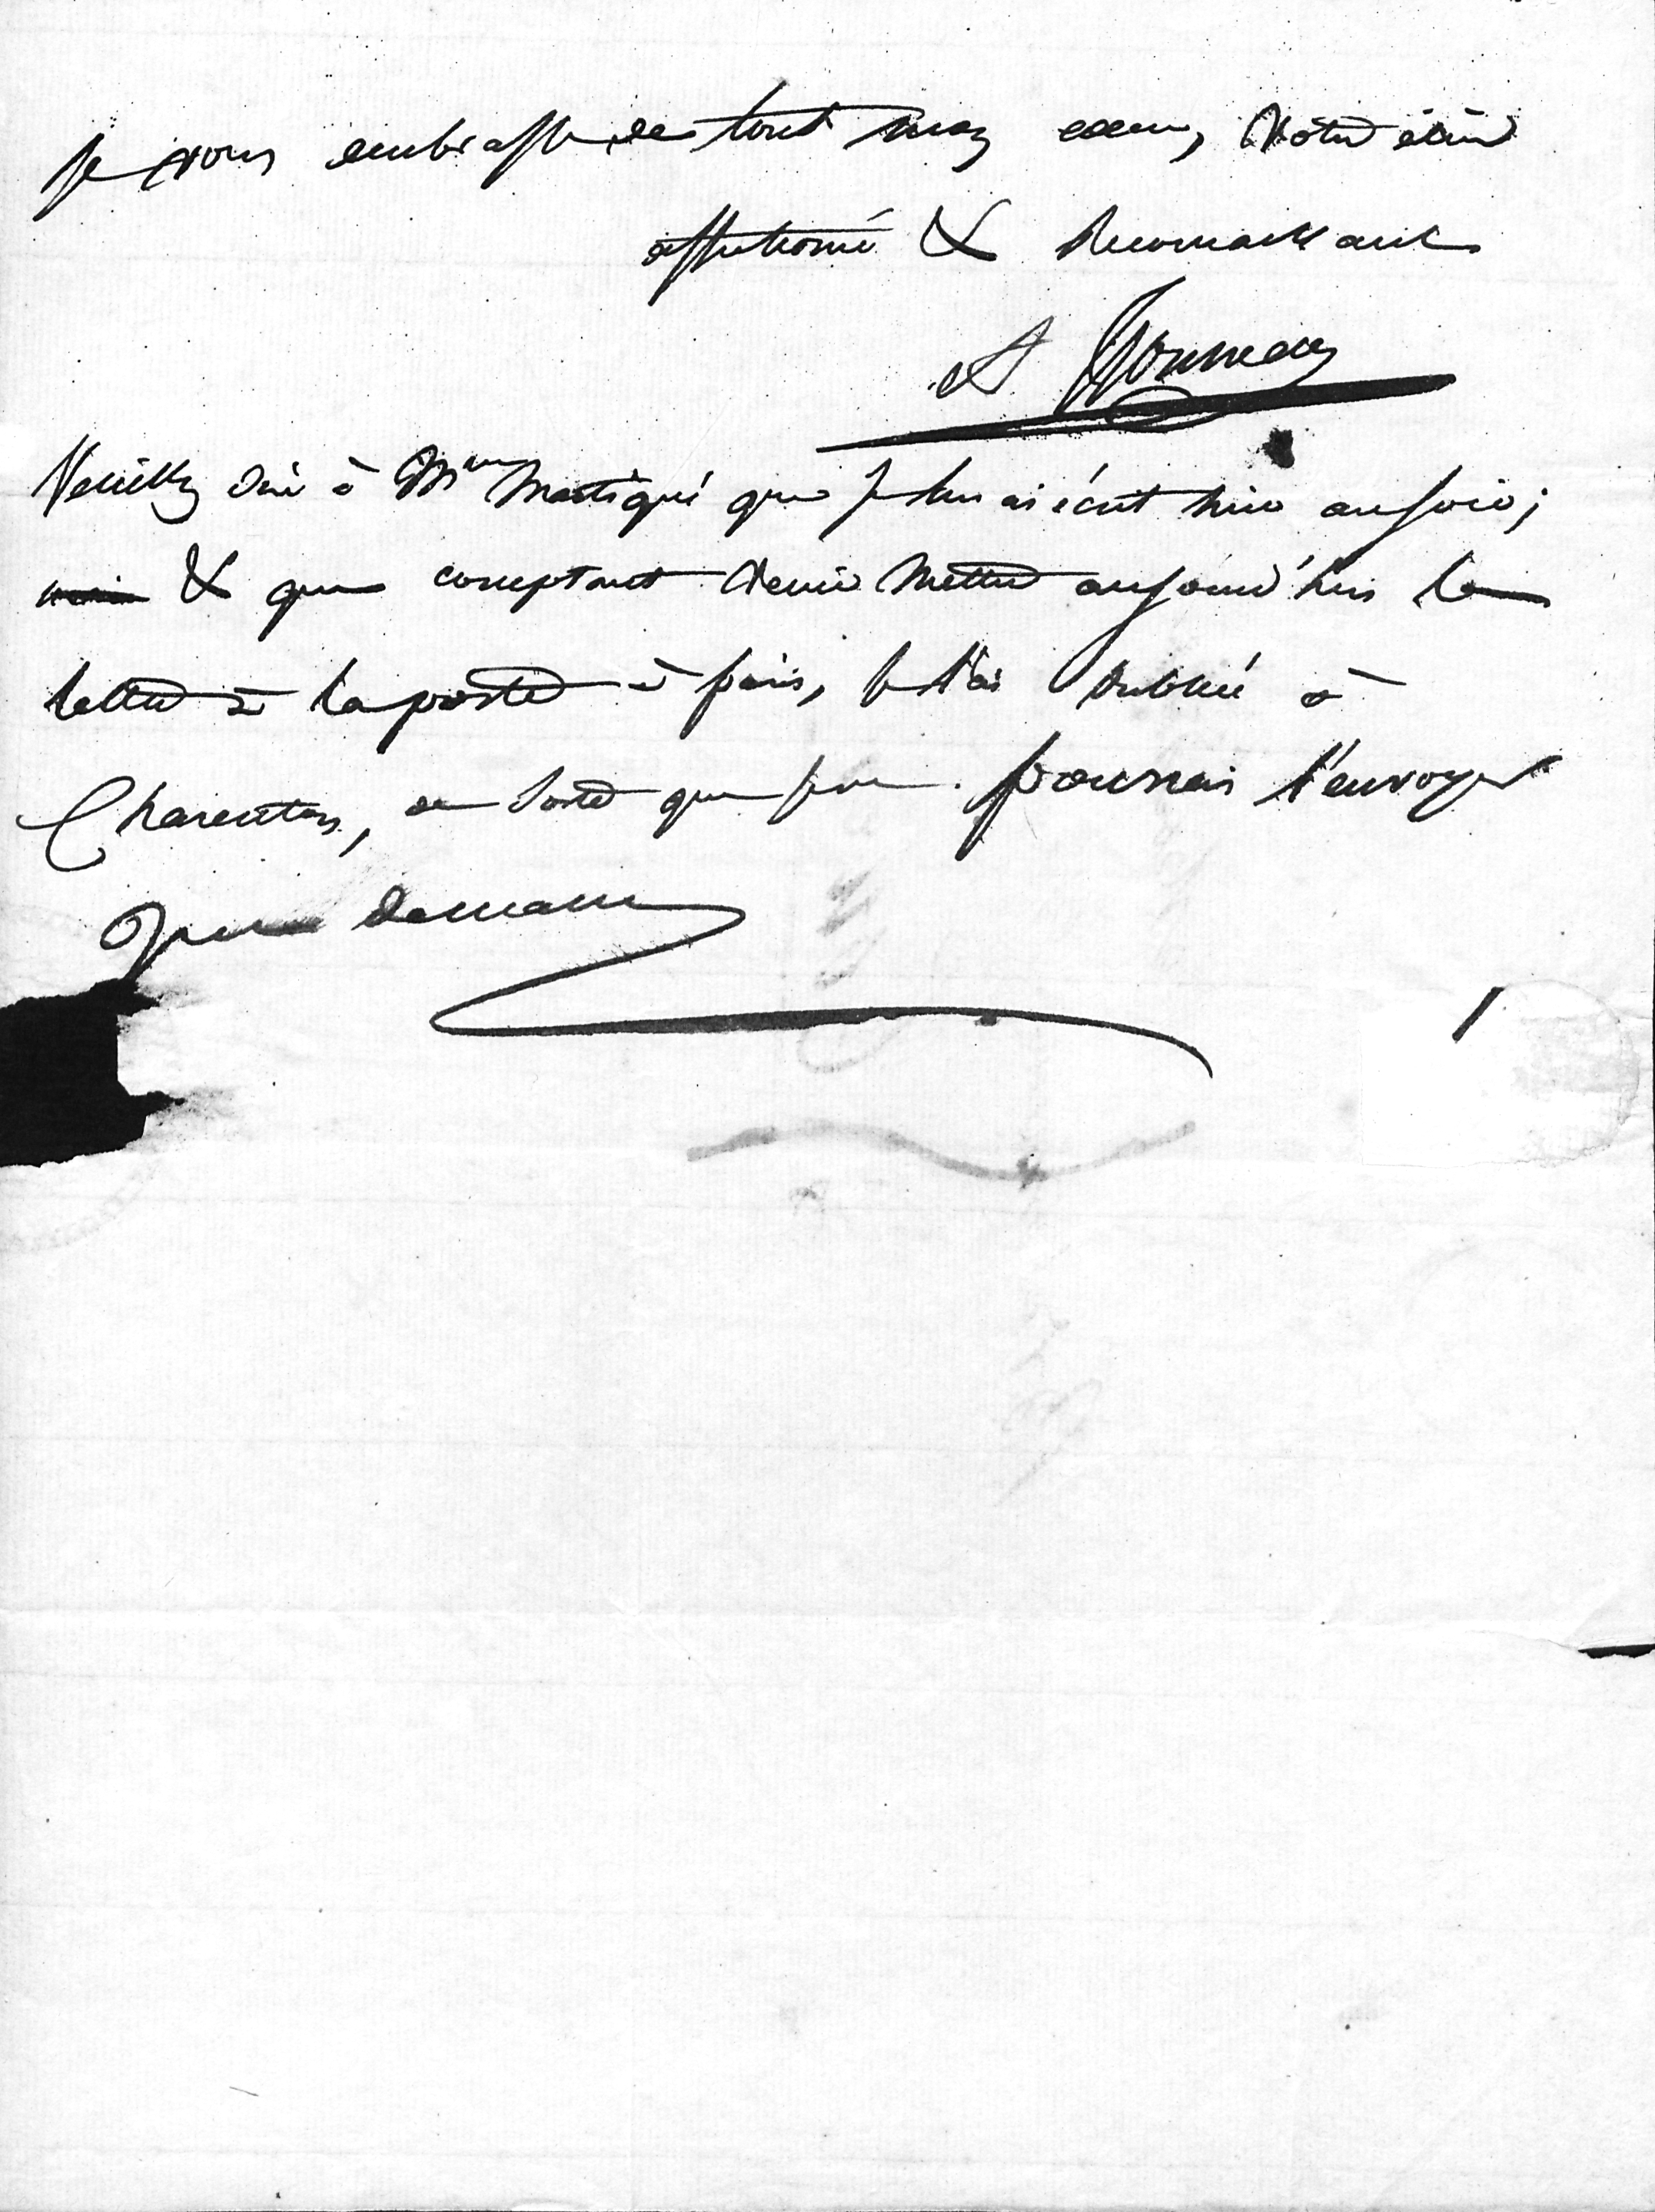 Je vous embrasse de tout mon cœur, Votre élève
affectionné & reconnaissant
Veuillez dire à Mme Martigné que je lui ai écrit hier au soir;
& que comptant venir mettre aujourd'hui la
lettre à la poste à paris, je l'ai oublié à
Charenton, en sorte que je ne pourrai l'envoyer
que demain